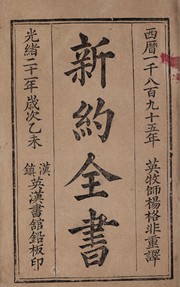 西曆一千八百九十五年
英牧師楊格非重譯
新約全書
光緒二十一年歲次乙未
漢鎮英漢書館鉛板印